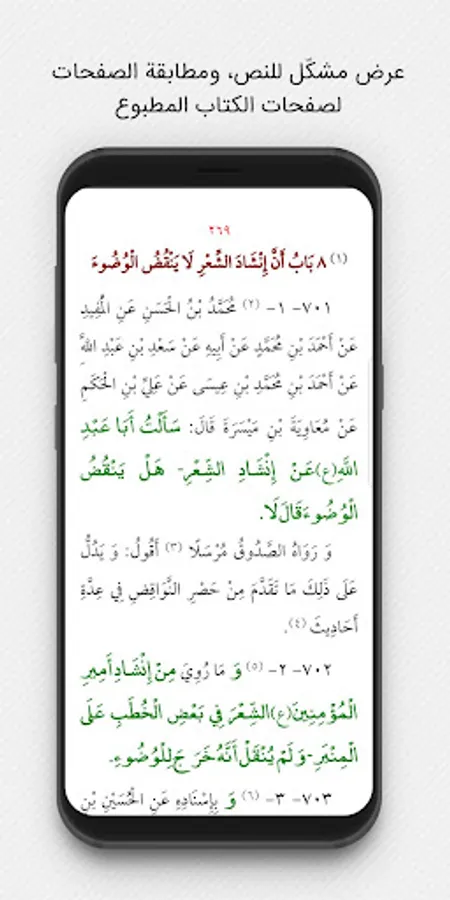 عرض مشكّل للنص، ومطابقة الصفحات
لصفحات الكتاب المطبوع
٢٦٩
(١) ٨ بَابُ أَنَّ إِنْشَادَ الشِّعْرِ لَا يَنْقُضُ الْوُضُوءَ
٧٠١- ١- (٢) مُحَمَّدُ بْنُ الْحَسَنِ عَنِ الْمُفِيدِ
عَنْ أَحْمَدَ بْنِ مُحَمَّدٍ عَنْ أَبِيهِ عَنْ سَعْدِ بْنِ عَبْدِ اللَّهِ
عَنْ أَحْمَدَ بْنِ مُحَمَّدِ بْنِ عِيسَى عَنْ عَلِيِّ بْنِ الْحَكَمِ
عَنْ مُعَاوِيَةَ بْنِ مَيْسَرَةَ قَالَ: سَأَلْتُ أَبَا عَبْدِ
اللَّهِ(ع)عَنْ إِنْشَادِ الشِّعْرِ- هَلْ يَنْقُضُ
الْوُضُوءَقَالَ لَا.
وَ رَوَاهُ الصَّدُوقُ مُرْسَلًا (٣) أَقُولُ: وَ يَدُلُّ
عَلَى ذَلِكَ مَا تَقَدَّمَ مِنْ حَصْرِ النَّوَاقِضِ فِي عِدَّةِ
أَحَادِيثَ (٤).
٧٠٢- ٢- (٥) وَ مَا رُوِيَ مِنْ إِنْشَادِ أَمِيرِ
الْمُؤْمِنِينَ(ع)الشِّعْرَ فِي بَعْضِ الْخُطَبِ عَلَى
الْمِنْبَرِ- وَ لَمْ يُنْقَلْ أَنَّهُ خَرَجَ لِلْوُضُوءِ.
٧٠٣- ٣- (٦) وَ بِإِسْنَادِهِ عَنِ الْحُسَيْنِ بْنِ